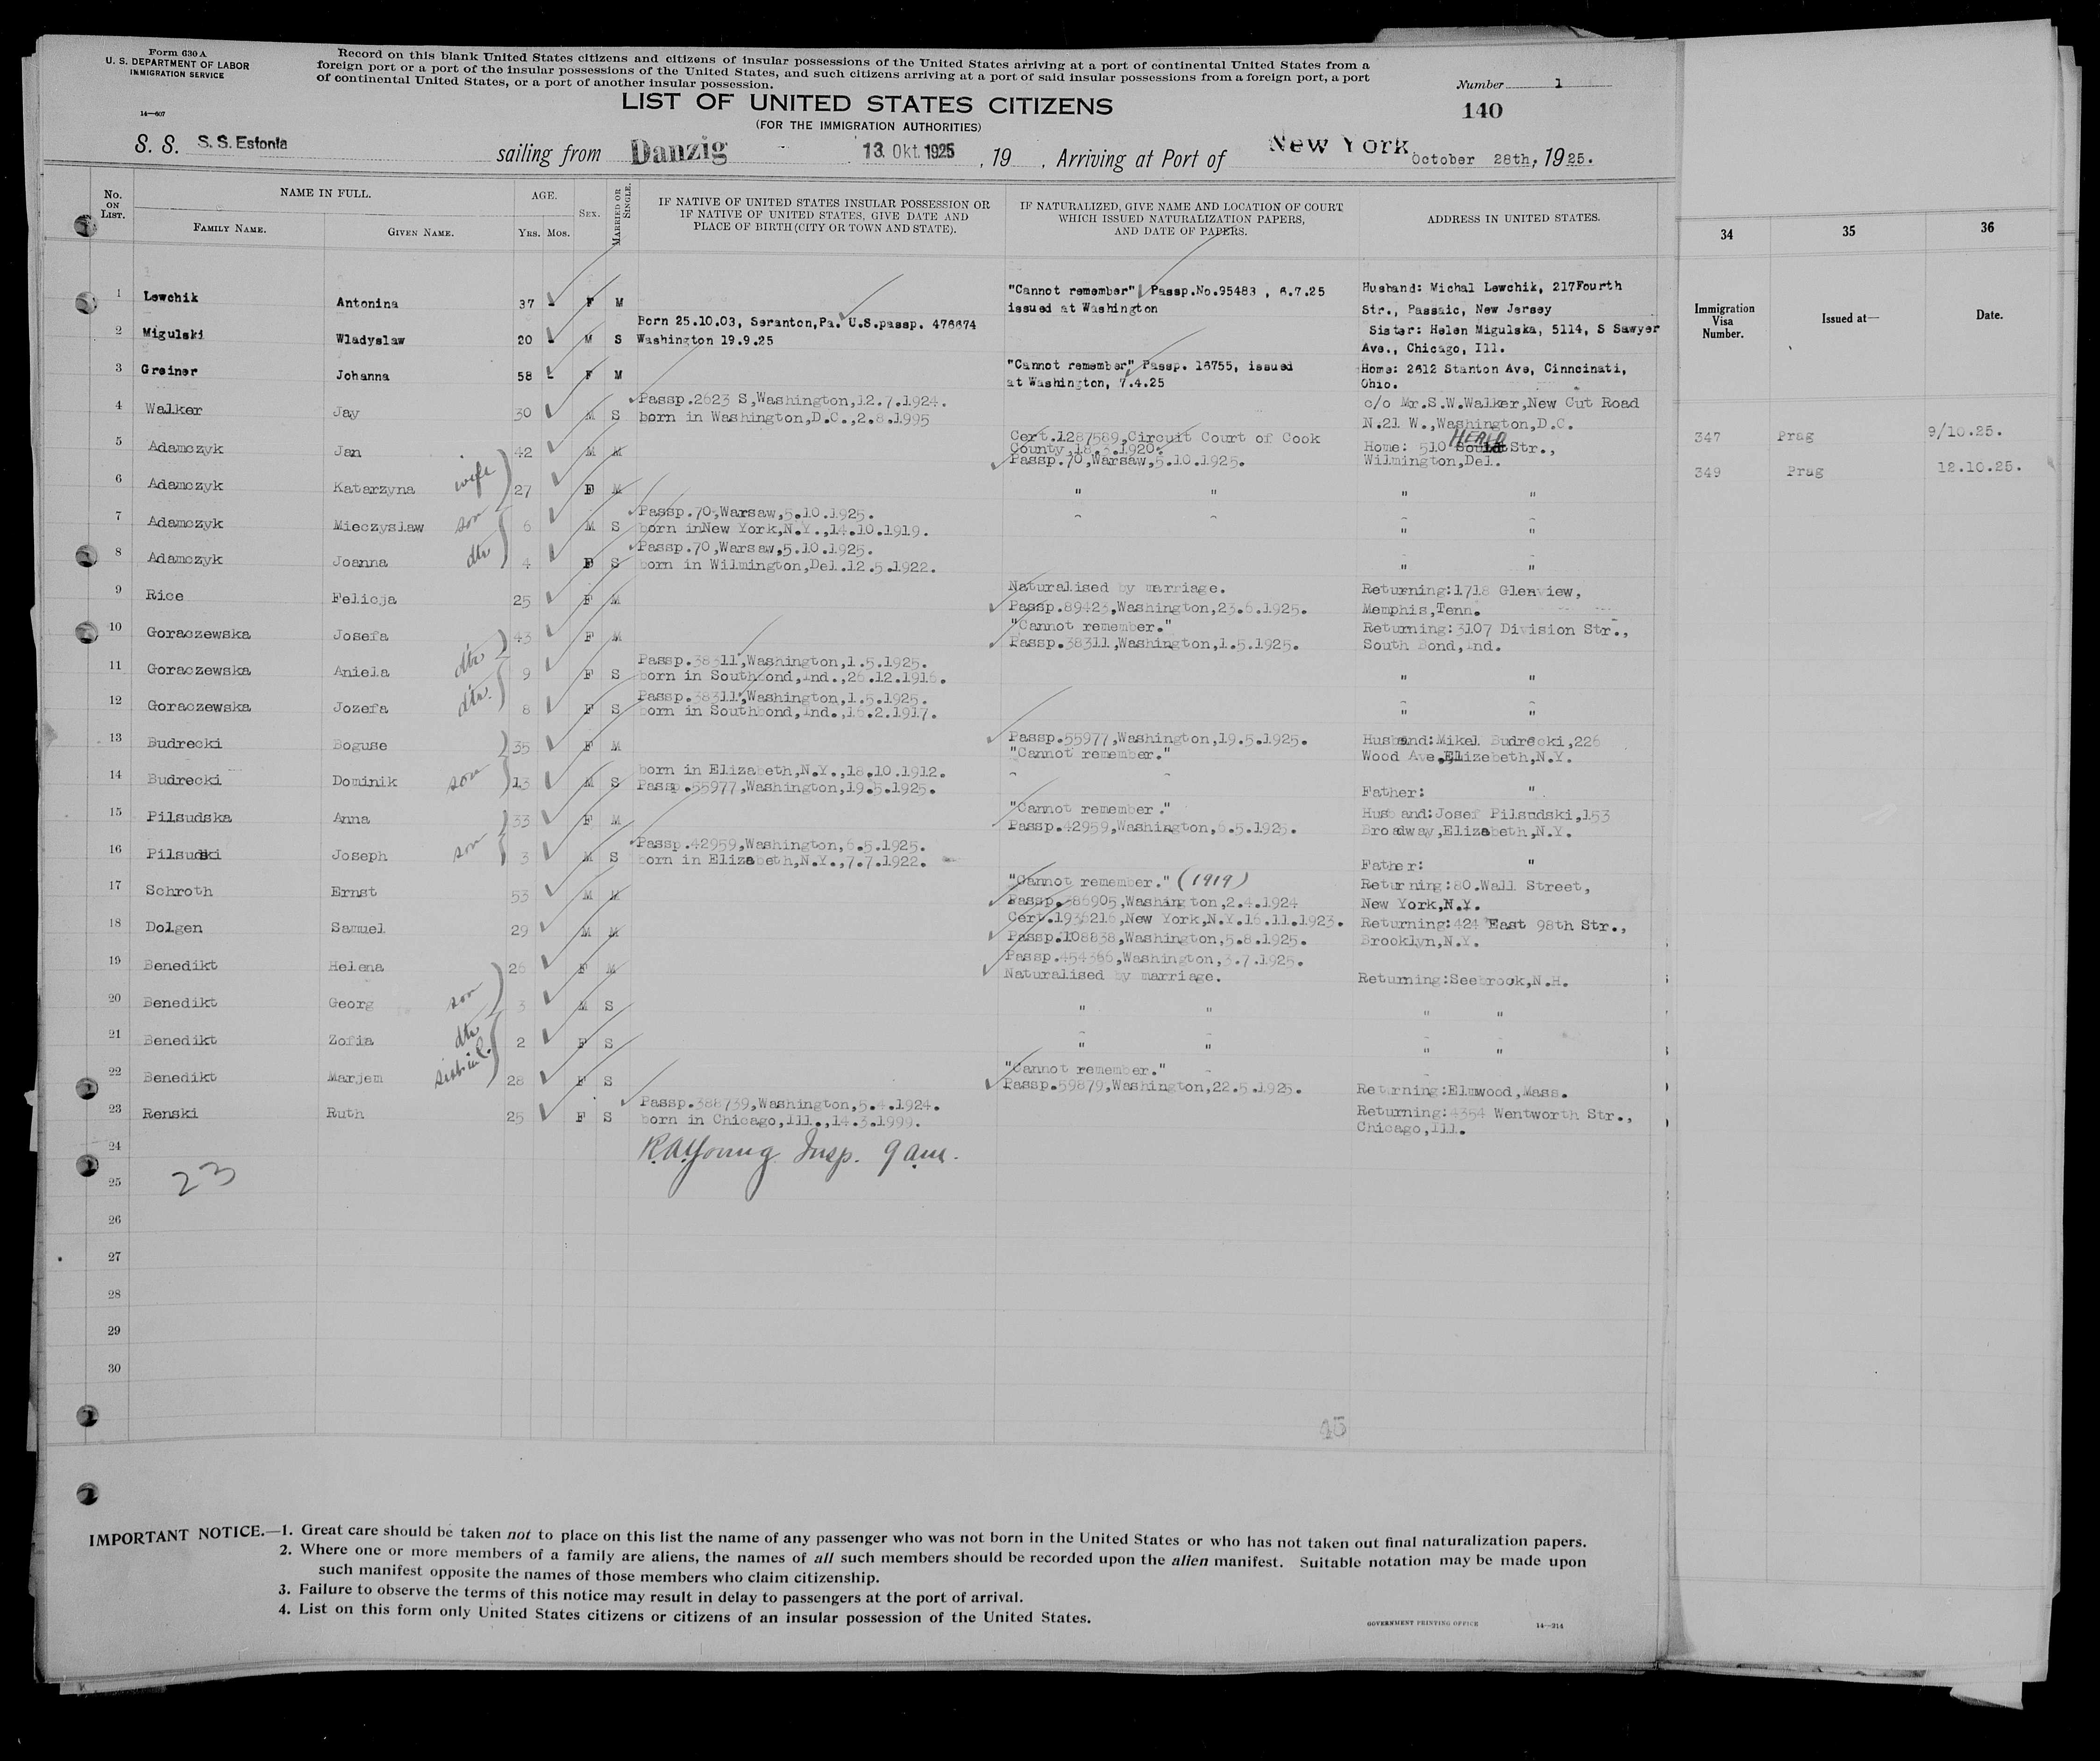 Form 630 A
U. S. DEPARTMENT OF LABOR
IMMIGRATION SERVICE
14—607
Record on this blank United States citizens and citizens of insular possessions of the United States arriving at a port of continental United States from a
foreign port or a port of the insular possessions of the United States, and such citizens arriving at a port of said insular possessions from a foreign port, a port
of continental United States, or a port of another insular possession.
Number 1
140
LIST OF UNITED STATES CITIZENS
(FOR THE IMMIGRATION AUTHORITIES)
S. S. S. S. Estonia sailing from Danzig 13. Okt. 1925, 19 , Arriving at Port of New York October 28th, 1925.
No. ON LIST. NAME IN FULL. AGE. SEX. MARRIED OR SINGLE. IF NATIVE OF UNITED STATES INSULAR POSSESSION OR IF NATIVE OF UNITED STATES, GIVE DATE AND PLACE OF BIRTH (CITY OR TOWN AND STATE). IF NATURALIZED, GIVE NAME AND LOCATION OF COURT WHICH ISSUED NATURALIZATION PAPERS, AND DATE OF PAPERS. ADDRESS IN UNITED STATES.
FAMILY NAME. GIVEN NAME. YRS. MOS.
34 35 36
Immigration Visa Number. Issued at— Date.
1 Lewchik Antonina 37 - F M "Cannot remember" Passp.No.95483 , 6.7.25 Husband: Michal Lewchik, 217Fourth
issued at Washington Str., Passaic, New Jersey
2 Migulski Wladyslaw 20 - M S Born 25.10.03, Seranton,Pa. U.S.passp. 476674 Sister: Helen Migulska, 5114, S Sawyer
Washington 19.9.25 Ave., Chicago, Ill.
3 Greiner Johanna 58 - F M "Cannot remember", Passp. 16755, issued Home: 2612 Stanton Ave, Cinncinati,
at Washington, 7.4.25 Ohio.
4 Walker Jay 30 M S Passp.2623 S,Washington,12.7.1924. c/o Mr.S.W.Walker,New Cut Road
born in Washington,D.C.,2.8.1995 N.21 W.,Washington,D.C.
5 Adamczyk Jan 42 M M Cert.1287589,Circuit Court of Cook Home: 510 HERLD Str.,
County,18.3.1920. Wilmington,Del.
Passp.70,Warsaw,5.10.1925.
347 Prag 9/10.25.
6 Adamczyk Katarzyna wife 27 F M " " " "
349 Prag 12.10.25.
7 Adamczyk Mieczyslaw son 6 M S Passp.70,Warsaw,5.10.1925.
born inNew York,N.Y.,14.10.1919. " "
8 Adamczyk Joanna dtr 4 F S Passp.70,Warsaw,5.10.1925.
born in Wilmington,Del.12.5.1922. " "
9 Rice Felicja 25 F M Naturalised by marriage. Returning:1718 Glenview,
Passp.89423,Washington,23.6.1925. Memphis,Tenn.
10 Goraczewska Josefa 43 F M "Cannot remember." Returning:3107 Division Str.,
Passp.38311,Washington,1.5.1925. South Bond,Ind.
11 Goraczewska Aniela dtr 9 F S Passp.38311,Washington,1.5.1925.
born in Southbond,Ind.,26.12.1916. " "
12 Goraczewska Jozefa dtr. 8 F S Passp.38311,Washington,1.5.1925.
born in Southbond,Ind.,16.2.1917. " "
13 Budrecki Boguse 35 F M Passp.55977,Washington,19.5.1925. Husband:Mikel Budrecki,226
"Cannot remember." Wood Ave.,Elizebeth,N.Y.
14 Budrecki Dominik son 13 M S born in Elizabeth,N.Y.,18.10.1912.
Passp.55977,Washington,19.5.1925. Father: "
15 Pilsudska Anna 33 F M "Cannot remember." Husband:Josef Pilsudski,153
Passp.42959,Washington,6.5.1925. Broadway,Elizabeth,N.Y.
16 Pilsudski Joseph son 3 M S Passp.42959,Washington,6.5.1925.
born in Elizabeth,N.Y.,7.7.1922. Father: "
17 Schroth Ernst 53 M M "Cannot remember." (1919) Returning:80.Wall Street,
Passp.386905,Washington,2.4.1924 New York,N.Y.
18 Dolgen Samuel 29 M M Cert.1936216,New York,N.Y.16.11.1923. Returning:424 East 98th Str.,
Passp.108838,Washington,5.8.1925. Brooklyn,N.Y.
19 Benedikt Helena 26 F M Passp.454366,Washington,3.7.1925.
Naturalised by marriage. Returning:Seebrook,N.H.
20 Benedikt Georg son 3 M S " " " "
21 Benedikt Zofia dtr 2 F S " " " "
22 Benedikt Marjem 28 F S "Cannot remember."
Passp.59879,Washington,22.5.1925. Returning:Elmwood,Mass.
23 Renski Ruth 25 F S Passp.388739,Washington,5.4.1924. Returning:4354 Wentworth Str.,
born in Chicago,Ill.,14.3.1999. Chicago,Ill.
24 R.A.Young Insp. 9 am.
23
25
26
27
28
29
30
IMPORTANT NOTICE.—1. Great care should be taken not to place on this list the name of any passenger who was not born in the United States or who has not taken out final naturalization papers.
2. Where one or more members of a family are aliens, the names of all such members should be recorded upon the alien manifest. Suitable notation may be made upon
such manifest opposite the names of those members who claim citizenship.
3. Failure to observe the terms of this notice may result in delay to passengers at the port of arrival.
4. List on this form only United States citizens or citizens of an insular possession of the United States.
GOVERNMENT PRINTING OFFICE 14—214